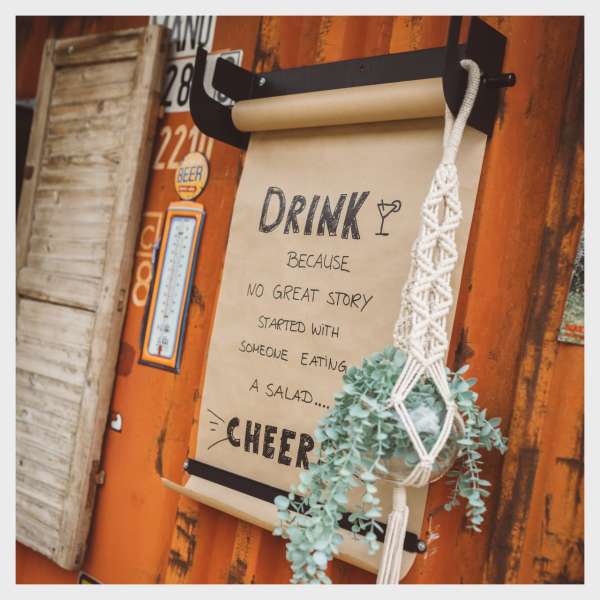 BEER
DRINK
BECAUSE
NO GREAT STORY
STARTED WITH
SOMEONE EATING
A SALAD....
CHEER